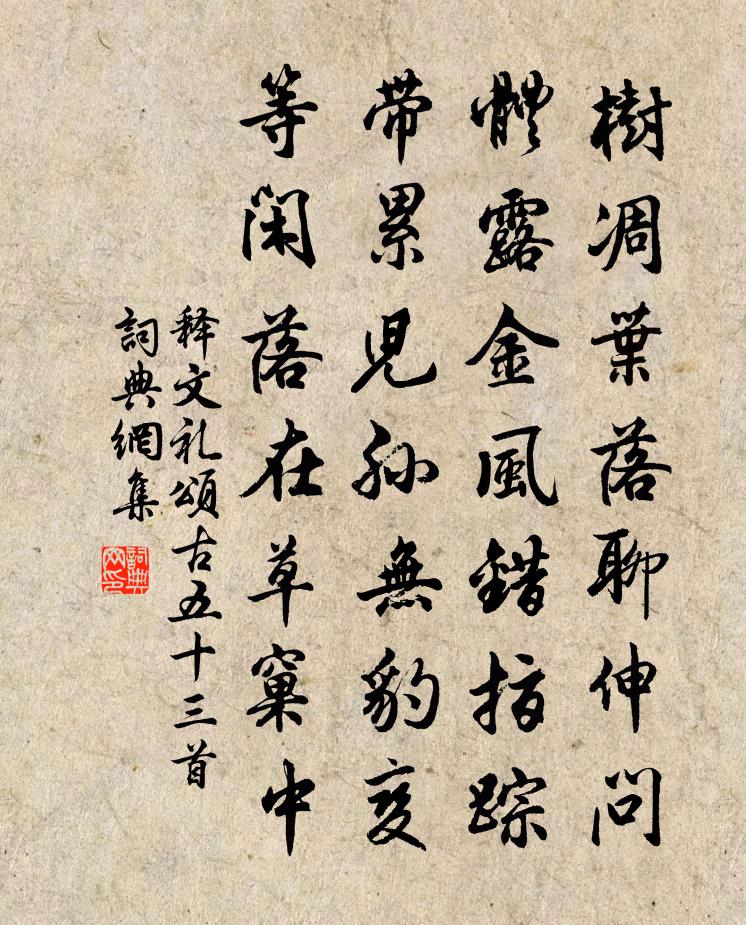 樹凋葉落聊伸問
體露金風錯指踪
带累児孫無豹変
等閑落在草窠中
释文礼頌古五十三首
詞典網集
詞典网印